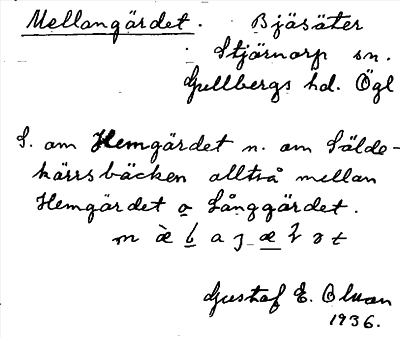 Mellangärdet. Bjäsäter
Stjärnorp sn.
Gullbergs hd. Ögl
S. om Hemgärdet n. om Sälde-
kärrsbäcken alltså mellan
Hemgärdet o Långgärdet.
Gustaf E. Olson
1936.